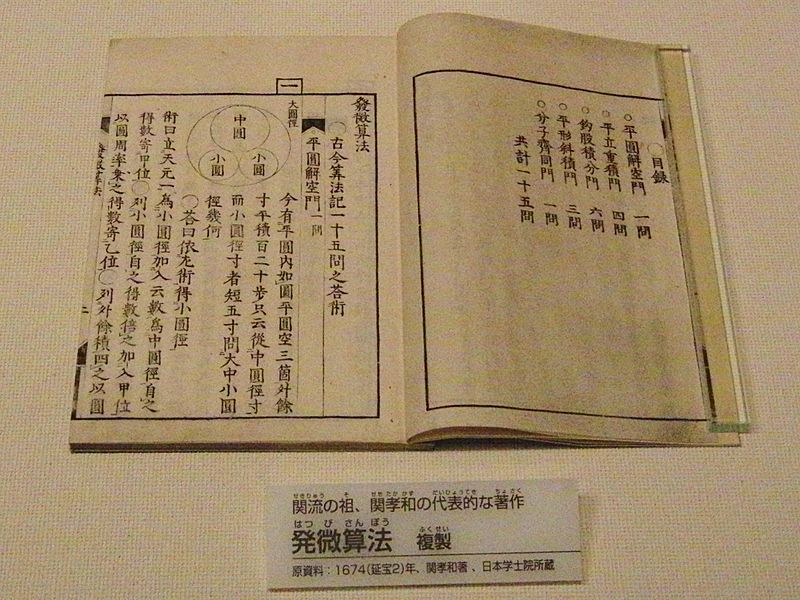 〇目録
○平圓解空門 一問
○平立重積門 四問
○鈎股積分門 六問
○平形斜積門 三問
○分子齊同門 一問
共計一十五問
一
發微算法
〇古今筭法記一十五問之荅術
平圓解空門 一問
大圓徑
中圓
小圓
小圓
今有平圓内如圖平圓空三箇外餘
寸平積百二十步只云從中圓徑寸
而小圓徑寸者短五寸問大中小圓
徑幾何
〇荅曰依左術得小圓徑
術曰立天元一爲小圓徑加入云數爲中圓徑自之
得數寄甲位〇列小圓徑自之得數倍之加入甲位
以圓周率乗之得數寄乙位〇列外餘積四之以圓
二
関流の祖、関孝和の代表的な著作
発微算法 複製
原資料：1674(延宝2)年、関孝和著、日本学士院所蔵